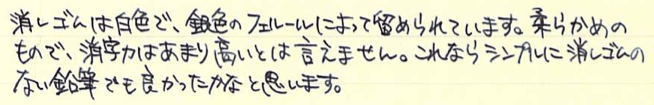 消しゴムは白色で、銀色のフェルールによって留められています。柔らかめの
もので、消字力はあまり高いとは言えません。これならシンプルに消しゴムの
ない鉛筆でも良かったかなと思います。